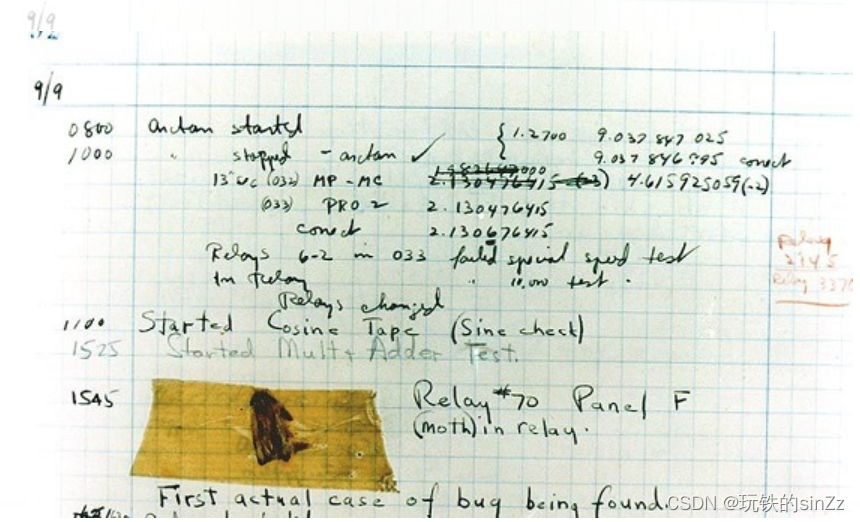 9/9
9/9
0800 antan started { 1.2700 9.037 847 025
1000 " stopped - antan ✓ 9.037 846 795 conect
13" uc (032) MP - MC 2.130476415 4.615925059(-2)
(033) PRO 2 2.130476415
conect 2.130676415
Relays 6-2 in 033 failed special speed test
In Relay " 10.000 test .
Relays changed
1100 Started Cosine Tape (Sine check)
1525 Started Mult + Adder Test.
1545 Relay #70 Panel F
(moth) in relay.
First actual case of bug being found.
Relay
2145
Relay 3370
CSDN @玩铁的sinZz